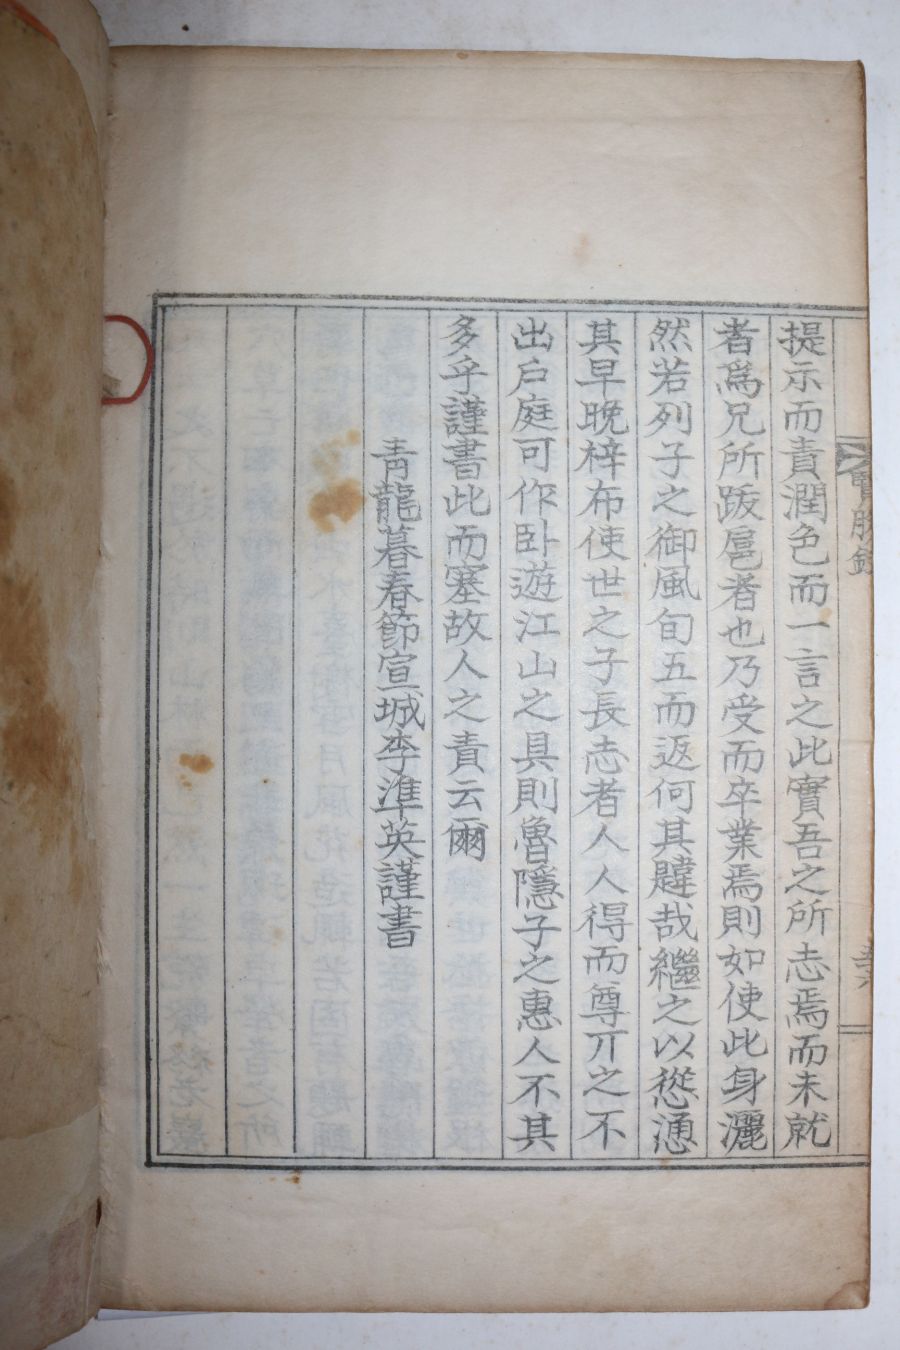 提示而責潤色而一言之此實吾之所志焉而未就
者爲兄所跋扈者也乃受而卒業焉則如使此身灑
然若列子之御風旬五而返何其韙哉繼之以慫慂
其早晩梓布使世之子長志者人人得而尊丌之不
出戶庭可作卧遊江山之具則魯隱子之惠人不其
多乎謹書此而塞故人之責云爾
靑龍暮春節宣城李準英謹書
勝